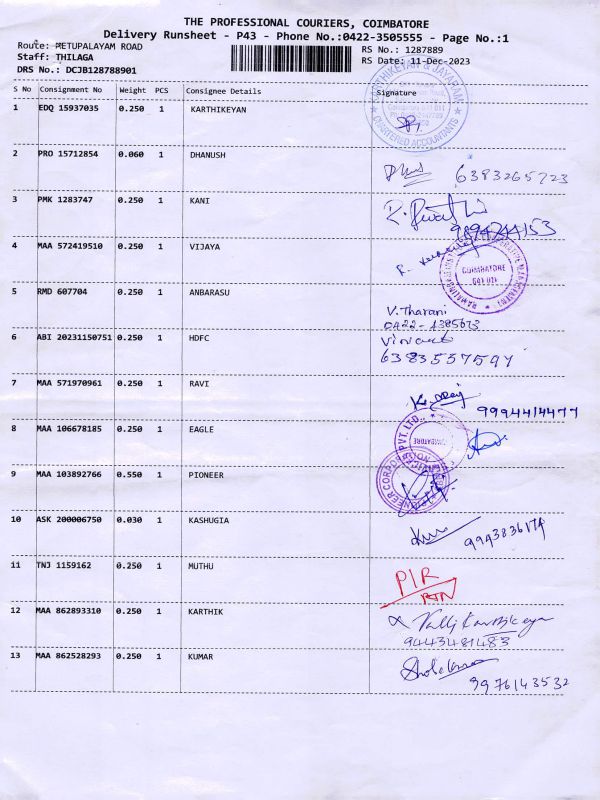 THE PROFESSIONAL COURIERS, COIMBATORE
Delivery Runsheet - P43 - Phone No.:0422-3505555 - Page No.:1
Route: METUPALAYAM ROAD
Staff: THILAGA
DRS No.: DCJB128788901
RS No.: 1287889
RS Date: 11-Dec-2023
S No Consignment No Weight PCS Consignee Details Signature
1 EDQ 15937035 0.250 1 KARTHIKEYAN
2 PRO 15712854 0.060 1 DHANUSH 6383265723
3 PMK 1283747 0.250 1 KANI 9894244153
4 MAA 572419510 0.250 1 VIJAYA
COIMBATORE
5 RMD 607704 0.250 1 ANBARASU V.Tharani
6 ABI 20231150751 0.250 1 HDFC
6383557594
7 MAA 571970961 0.250 1 RAVI
9994414477
8 MAA 106678185 0.250 1 EAGLE
9 MAA 103892766 0.550 1 PIONEER
10 ASK 200006750 0.030 1 KASHUGIA
11 TNJ 1159162 0.250 1 MUTHU P/R
RTN
12 MAA 862893310 0.250 1 KARTHIK
9443481483
13 MAA 862528293 0.250 1 KUMAR
9976143532